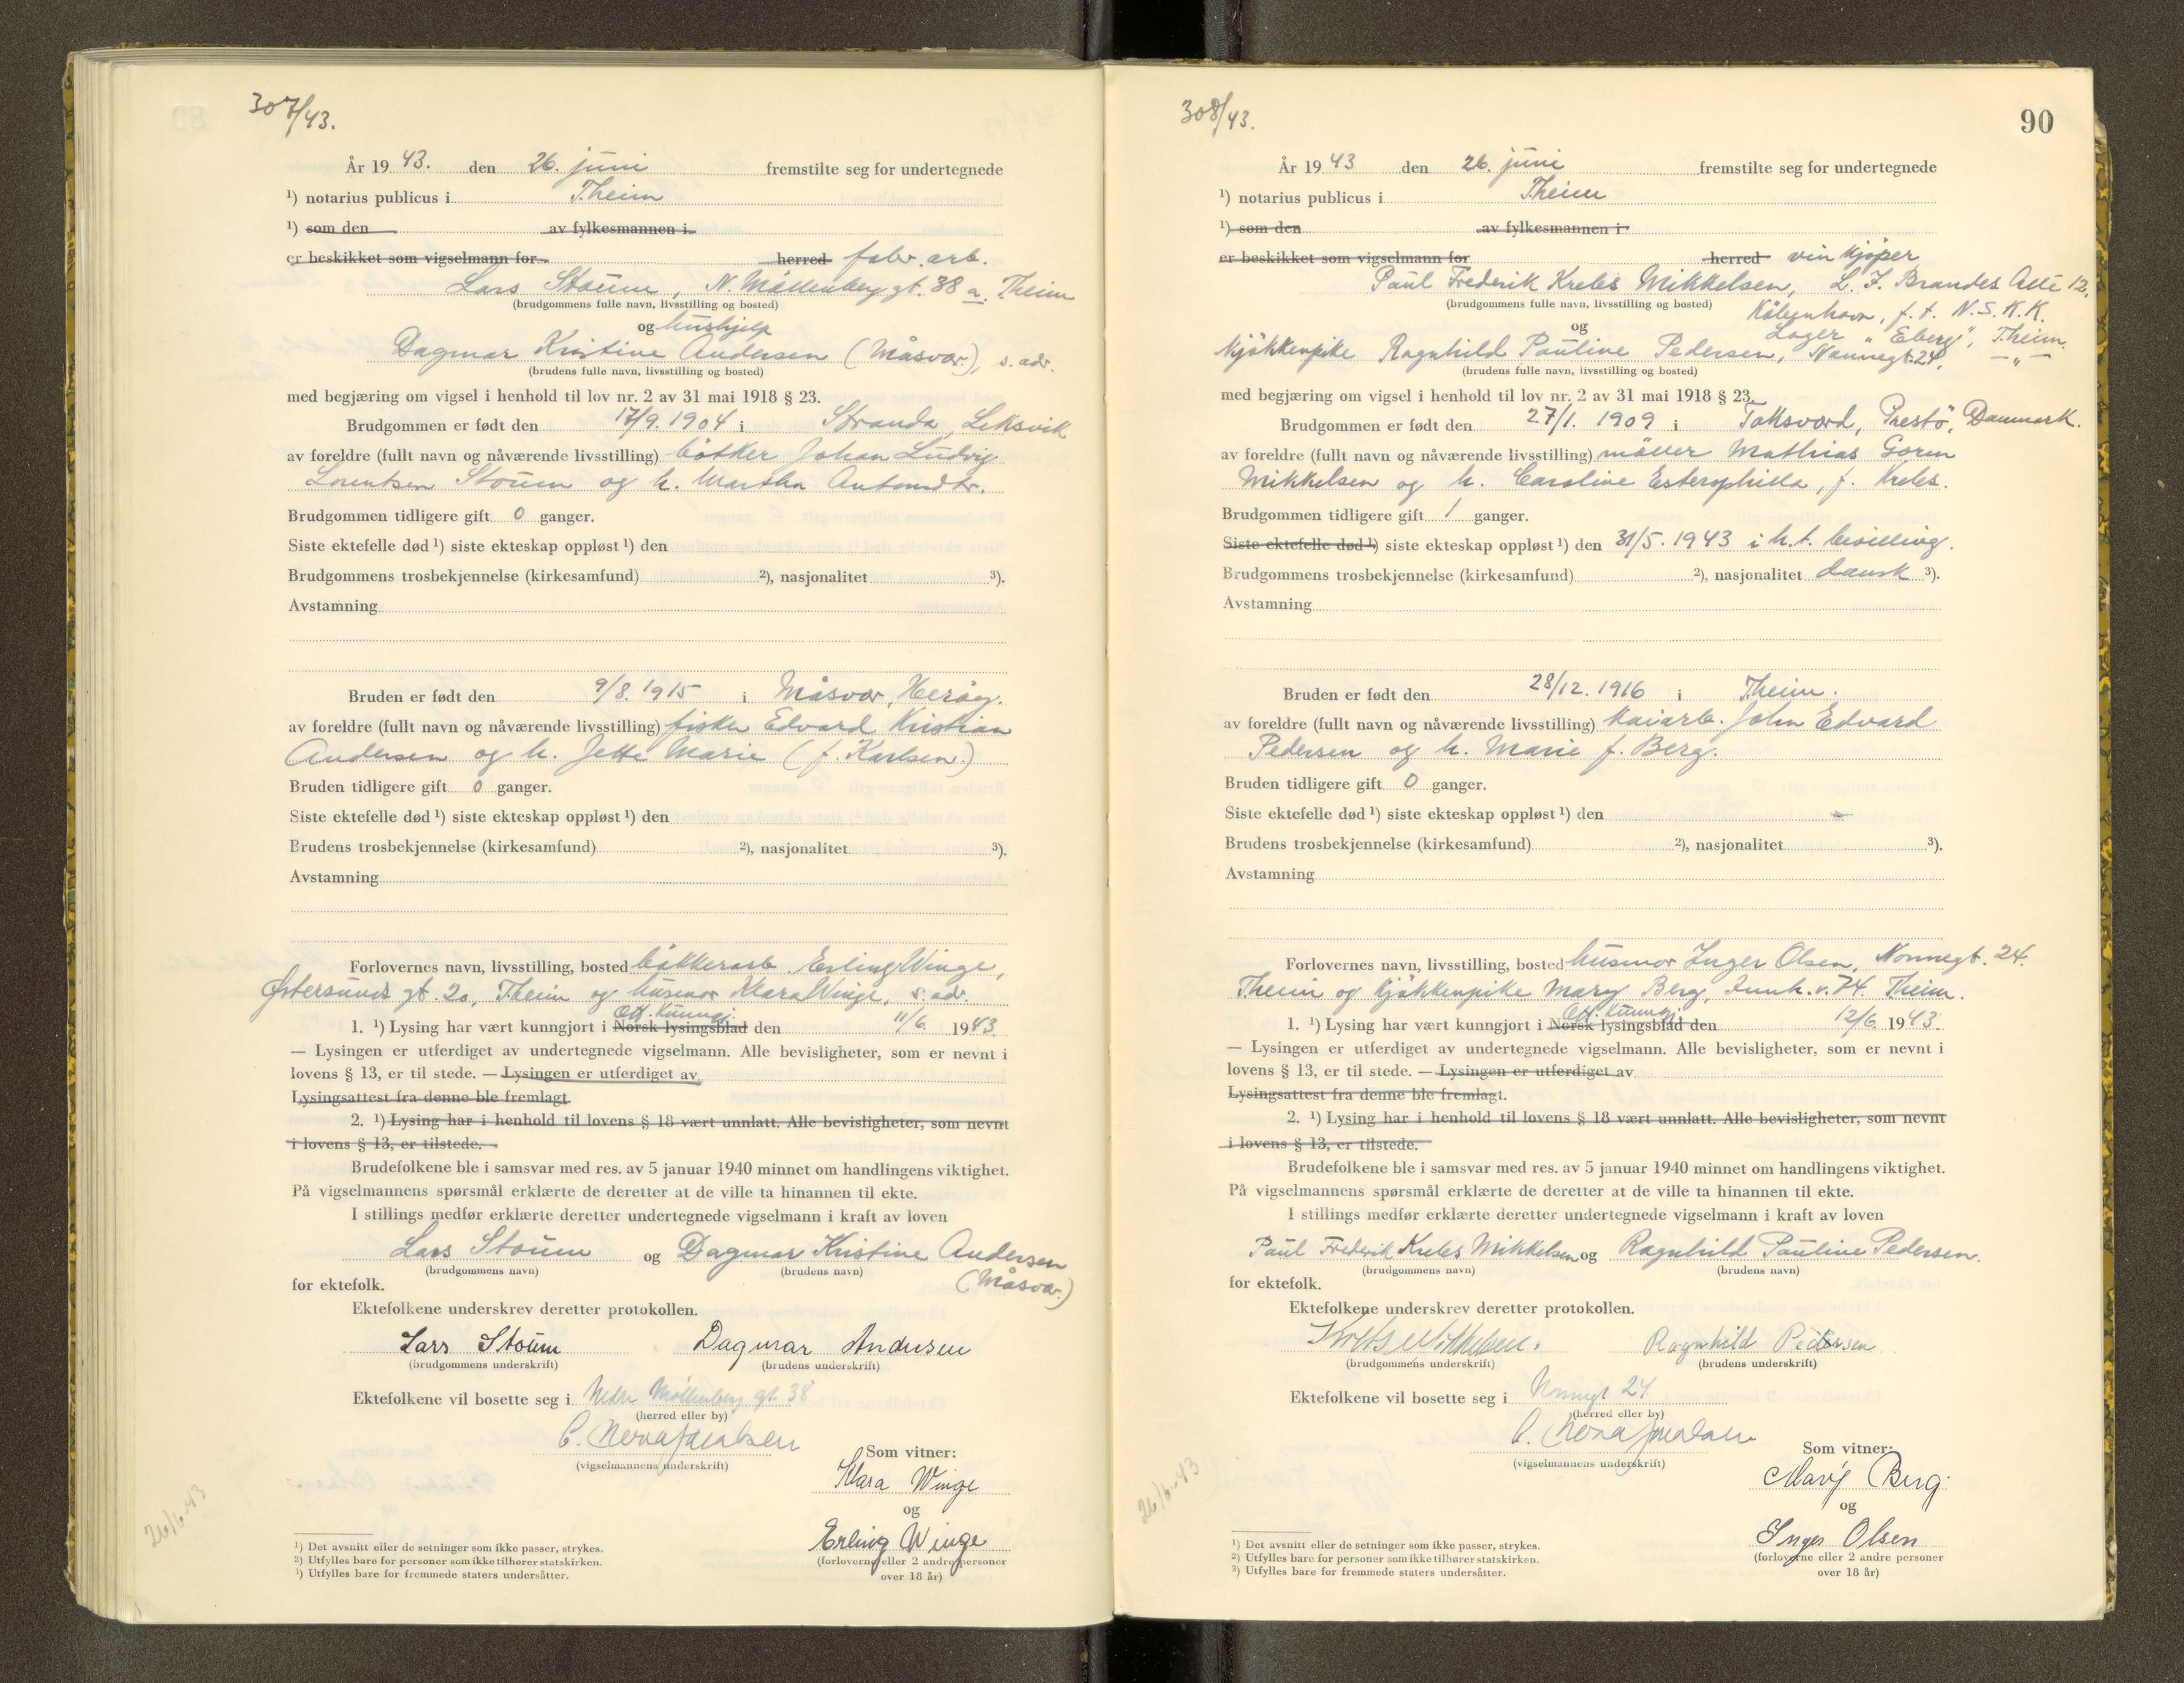 307/43.
År 19 43. den 26. juni fremstilte seg for undertegnede
¹) notarius publicus i Theim
¹) som den av fylkesmannen i
er beskikket som vigselmann for herred fabr. arb.
Lars Stoum, N. Möllenberg gt. 38 a. Theim
(brudgommens fulle navn, livsstilling og bosted)
og hushjelp
Dagmar Kristine Andersen (Måsvær), s. adr.
(brudens fulle navn, livsstilling og bosted)
med begjæring om vigsel i henhold til lov nr. 2 av 31 mai 1918 § 23.
Brudgommen er født den 17/9. 1904 i Stranda, Leksvik
av foreldre (fullt navn og nåværende livsstilling) bötker Johan Ludvig
Lorentsen Stoum og h. Martha Antonsdtr.
Brudgommen tidligere gift 0 ganger.
Siste ektefelle død ¹) siste ekteskap oppløst ¹) den
Brudgommens trosbekjennelse (kirkesamfund) ²), nasjonalitet ³).
Avstamning
Bruden er født den 9/8. 1915 i Måsvær, Herøy.
av foreldre (fullt navn og nåværende livsstilling) fisker Edvard Kristian
Andersen og h. Jette Marie (f. Karlsen.)
Bruden tidligere gift 0 ganger.
Siste ektefelle død ¹) siste ekteskap oppløst ¹) den
Brudens trosbekjennelse (kirkesamfund) ²), nasjonalitet ³).
Avstamning
Forlovernes navn, livsstilling, bosted bakkerarb. Erling Winge,
Østersunds gt. 20, Theim og husmor Klara Winge, s. adr.
Off. kunngj.
1. ¹) Lysing har vært kunngjort i Norsk lysingsblad den 11/6. 1943.
— Lysingen er utferdiget av undertegnede vigselmann. Alle bevisligheter, som er nevnt i
lovens § 13, er til stede. — Lysingen er utferdiget av
Lysingsattest fra denne ble fremlagt.
2. ¹) Lysing har i henhold til lovens § 18 vært unnlatt. Alle bevisligheter, som nevnt
i lovens § 13, er tilstede. —
Brudefolkene ble i samsvar med res. av 5 januar 1940 minnet om handlingens viktighet.
På vigselmannens spørsmål erklærte de deretter at de ville ta hinannen til ekte.
I stillings medfør erklærte deretter undertegnede vigselmann i kraft av loven
Lars Stoum og Dagmar Kristine Andersen
(brudgommens navn) (brudens navn) (Måsvær)
for ektefolk.
Ektefolkene underskrev deretter protokollen.
Lars Stoum Dagmar Andersen
(brudgommens underskrift) (brudens underskrift)
Ektefolkene vil bosette seg i Nedre Möllenberg gt. 38
(herred eller by)
(vigselmannens underskrift)
Som vitner:
Klara Winge
og
Erling Winge
(forloverne eller 2 andre personer
over 18 år)
26/6-43
¹) Det avsnitt eller de setninger som ikke passer, strykes.
²) Utfylles bare for personer som ikke tilhører statskirken.
³) Utfylles bare for fremmede staters undersåtter.
308/43.
90
År 19 43 den 26. juni fremstilte seg for undertegnede
¹) notarius publicus i Theim
¹) som den av fylkesmannen i
er beskikket som vigselmann for herred vinkjöper
Paul Frederik Krebs Mikkelsen, L. I. Brandes Allé 12,
(brudgommens fulle navn, livsstilling og bosted) Köbenhavn, f. t. N.S.K.K.
og Lager „Eberg", Theim.
Kjökkenpike Ragnhild Pauline Pedersen, Nonnegt. 24, — „ —
(brudens fulle navn, livsstilling og bosted)
med begjæring om vigsel i henhold til lov nr. 2 av 31 mai 1918 § 23.
Brudgommen er født den 27/1. 1909 i Toksværd, Prestö, Danmark.
av foreldre (fullt navn og nåværende livsstilling) möller Mathias Gorm
Mikkelsen og h. Caroline Esterophilla, f. Krebs.
Brudgommen tidligere gift 1 ganger.
Siste ektefelle død ¹) siste ekteskap oppløst ¹) den 31/5. 1943 i h.t. bevilling.
Brudgommens trosbekjennelse (kirkesamfund) ²), nasjonalitet dansk ³).
Avstamning
Bruden er født den 28/12. 1916 i Theim.
av foreldre (fullt navn og nåværende livsstilling) kaiarb. John Edvard
Pedersen og h. Marie f. Berg.
Bruden tidligere gift 0 ganger.
Siste ektefelle død ¹) siste ekteskap oppløst ¹) den
Brudens trosbekjennelse (kirkesamfund) ²), nasjonalitet ³).
Avstamning
Forlovernes navn, livsstilling, bosted husmor Inger Olsen, Nonnegt. 24.
Theim og kjökkenpike Mary Berg, Innh. v. 74. Theim.
Off. kunngj.
1. ¹) Lysing har vært kunngjort i Norsk lysingsblad den 12/6 1943.
— Lysingen er utferdiget av undertegnede vigselmann. Alle bevisligheter, som er nevnt i
lovens § 13, er til stede. — Lysingen er utferdiget av
Lysingsattest fra denne ble fremlagt.
2. ¹) Lysing har i henhold til lovens § 18 vært unnlatt. Alle bevisligheter, som nevnt
i lovens § 13, er tilstede.
Brudefolkene ble i samsvar med res. av 5 januar 1940 minnet om handlingens viktighet.
På vigselmannens spørsmål erklærte de deretter at de ville ta hinannen til ekte.
I stillings medfør erklærte deretter undertegnede vigselmann i kraft av loven
Paul Frederik Krebs Mikkelsen og Ragnhild Pauline Pedersen.
(brudgommens navn) (brudens navn)
for ektefolk.
Ektefolkene underskrev deretter protokollen.
Krebs Mikkelsen. Ragnhild Pedersen
(brudgommens underskrift) (brudens underskrift)
Ektefolkene vil bosette seg i Nonnegt 24
(herred eller by)
(vigselmannens underskrift)
Som vitner:
Mary Berg.
og
Inger Olsen
(forloverne eller 2 andre personer
over 18 år)
26/6-43
¹) Det avsnitt eller de setninger som ikke passer, strykes.
²) Utfylles bare for personer som ikke tilhører statskirken.
³) Utfylles bare for fremmede staters undersåtter.